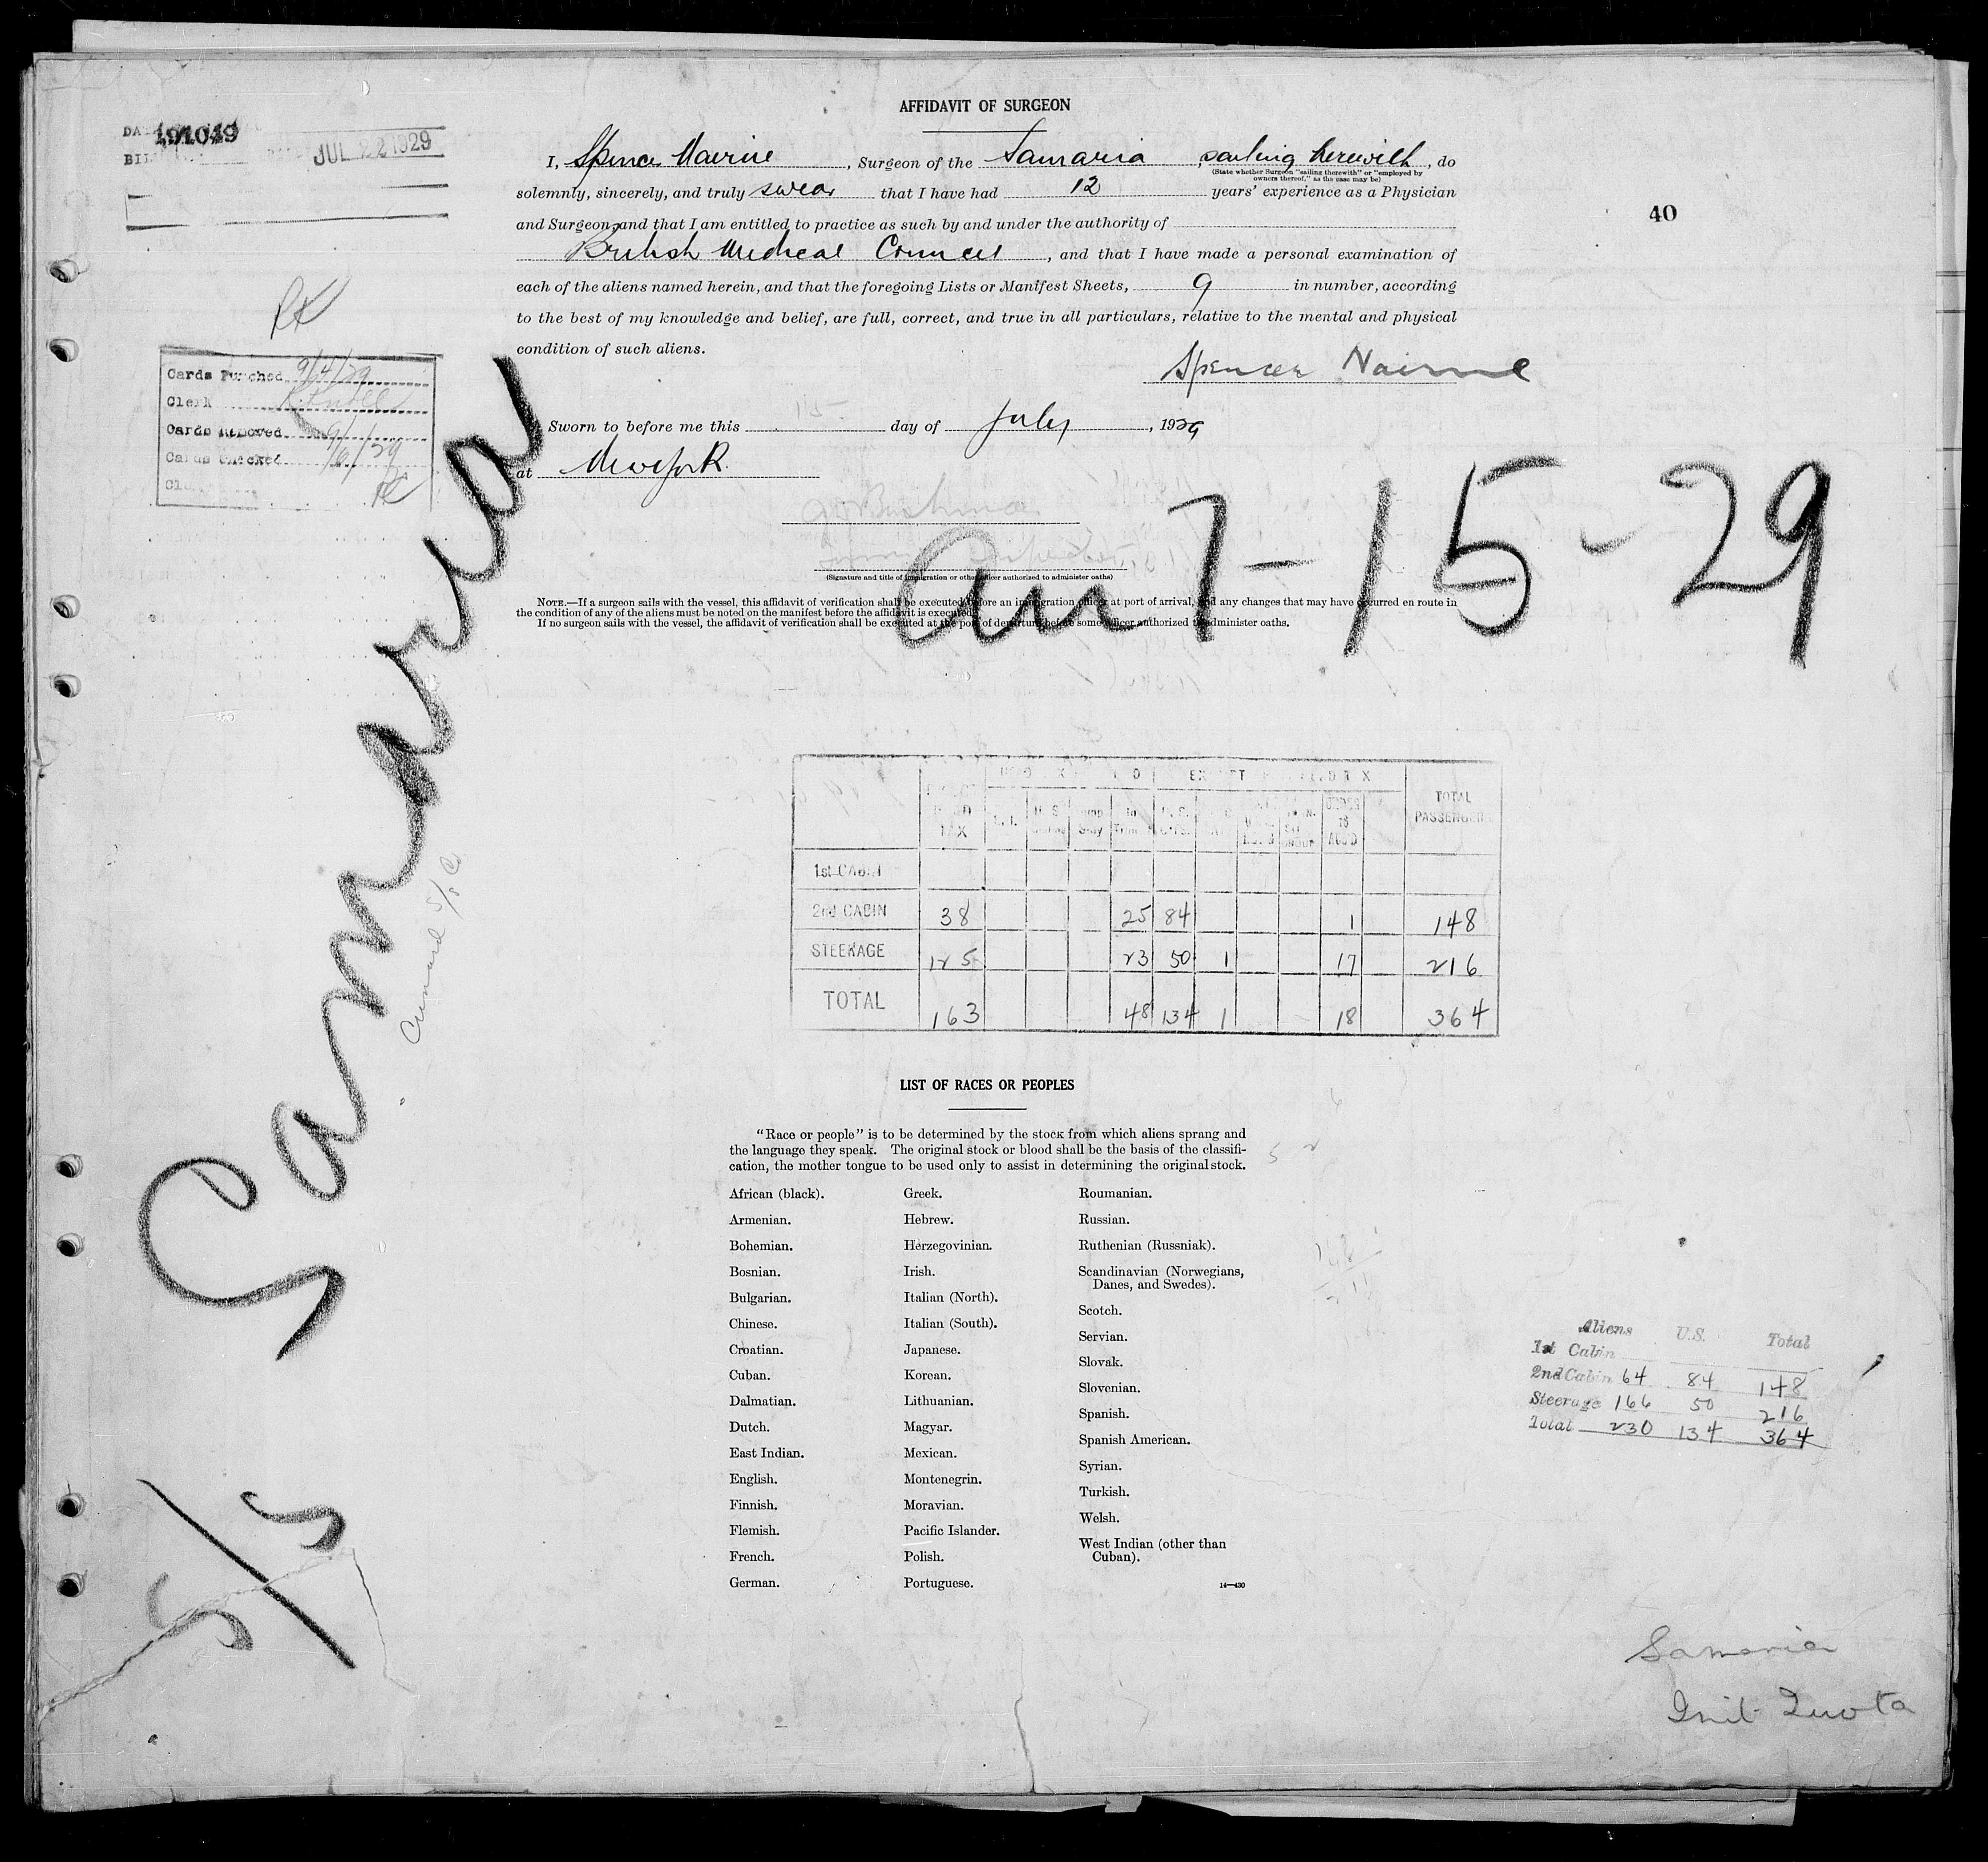 AFFIDAVIT OF SURGEON
191049
JUL 22 1929
I, Spencer Nairne, Surgeon of the Samaria, sailing herewith, do
(State whether Surgeon "sailing therewith" or "employed by
owners thereof," as the case may be)
solemnly, sincerely, and truly swear that I have had 12 years' experience as a Physician
and Surgeon and that I am entitled to practice as such by and under the authority of
British Medical Council, and that I have made a personal examination of
each of the aliens named herein, and that the foregoing Lists or Manifest Sheets, 9 in number, according
to the best of my knowledge and belief, are full, correct, and true in all particulars, relative to the mental and physical
condition of such aliens.
Spencer Nairne
40
Cards Punched 9/4/29
Clerk
Cards Removed
Cards Checked 9/6/29
Sworn to before me this 15 day of July, 1929
at New York.
Inspector
(Signature and title of immigration or other officer authorized to administer oaths)
NOTE.—If a surgeon sails with the vessel, this affidavit of verification shall be executed before an immigration officer at port of arrival, and any changes that may have occurred en route in
the condition of any of the aliens must be noted on the manifest before the affidavit is executed.
If no surgeon sails with the vessel, the affidavit of verification shall be executed at the port of departure before some officer authorized to administer oaths.
arr 7-15-29
S/S Samaria
Cunard S/S Co
TAX
TOTAL
PASSENGERS
1st CABIN
2nd CABIN 38 25 84 1 148
STEERAGE 125 23 50 1 17 216
TOTAL 163 48 134 1 18 364
LIST OF RACES OR PEOPLES
"Race or people" is to be determined by the stock from which aliens sprang and
the language they speak. The original stock or blood shall be the basis of the classifi-
cation, the mother tongue to be used only to assist in determining the original stock.
African (black).
Armenian.
Bohemian.
Bosnian.
Bulgarian.
Chinese.
Croatian.
Cuban.
Dalmatian.
Dutch.
East Indian.
English.
Finnish.
Flemish.
French.
German.
Greek.
Hebrew.
Herzegovinian.
Irish.
Italian (North).
Italian (South).
Japanese.
Korean.
Lithuanian.
Magyar.
Mexican.
Montenegrin.
Moravian.
Pacific Islander.
Polish.
Portuguese.
Roumanian.
Russian.
Ruthenian (Russniak).
Scandinavian (Norwegians,
Danes, and Swedes).
Scotch.
Servian.
Slovak.
Slovenian.
Spanish.
Spanish American.
Syrian.
Turkish.
Welsh.
West Indian (other than
Cuban).
14—430
Aliens U.S. Total
1st Cabin
2nd Cabin 64 84 148
Steerage 166 50 216
Total 230 134 364
Samaria
Quota